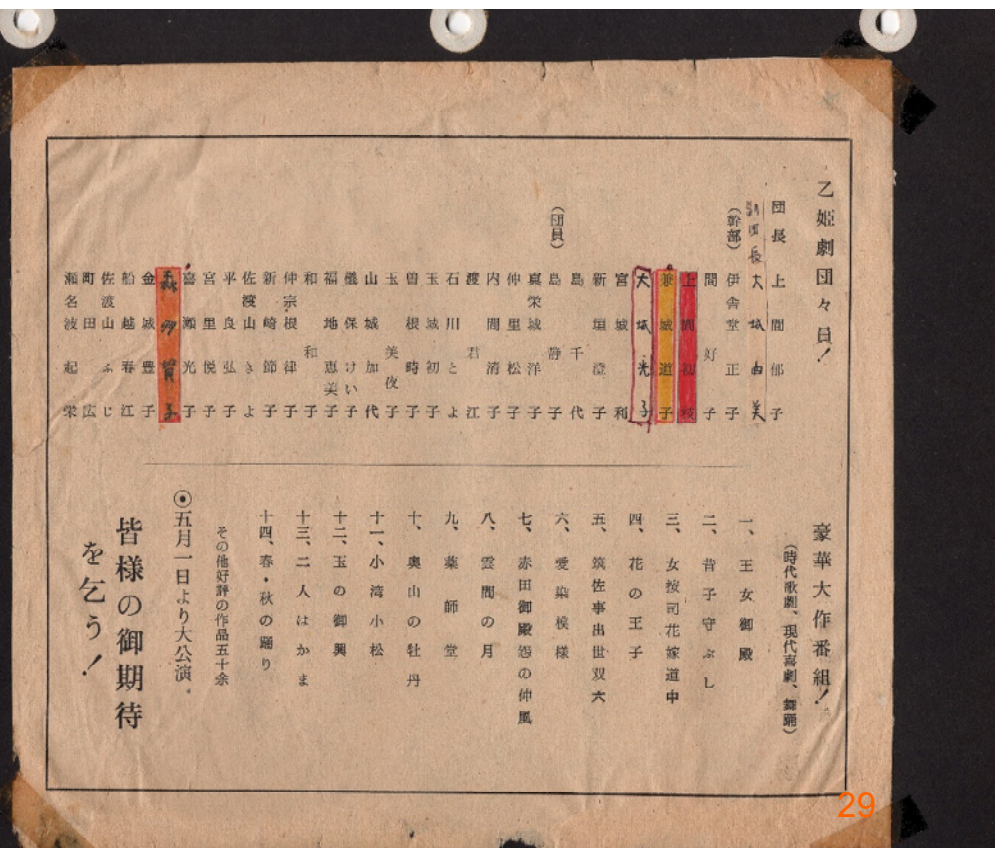 乙姫劇団々員！
団長 上間郁子
副団長 大城由美
（幹部） 伊舎堂正子
間好子
上間初枝
兼城道子
大城光子
宮城和
新垣澄子
島千代
（団員） 島静子
真栄城洋子
仲里松子
内間清子
渡君江
石川とよ
玉城初子
曽根時子
玉美夜子
山城加代
儀保けい子
福地恵美子
和和子
仲宗根律子
新崎節子
佐渡山きよ
平良弘子
宮里悦子
喜瀬光子
森田賀子
金城豊子
船越春江
佐渡山ふじ
町田広
瀬名波起栄
豪華大作番組！
（時代歌劇、現代喜劇、舞踊）
一、王女御殿
二、昔子守ぶし
三、女按司花嫁道中
四、花の王子
五、筑佐事出世双六
六、愛染模様
七、赤田御殿怨の仲風
八、雲間の月
九、薬師堂
十、奥山の牡丹
十一、小湾小松
十二、玉の御輿
十三、二人はかま
十四、春・秋の踊り
その他好評の作品五十余
◉五月一日より大公演。
皆様の御期待
を乞う！
29